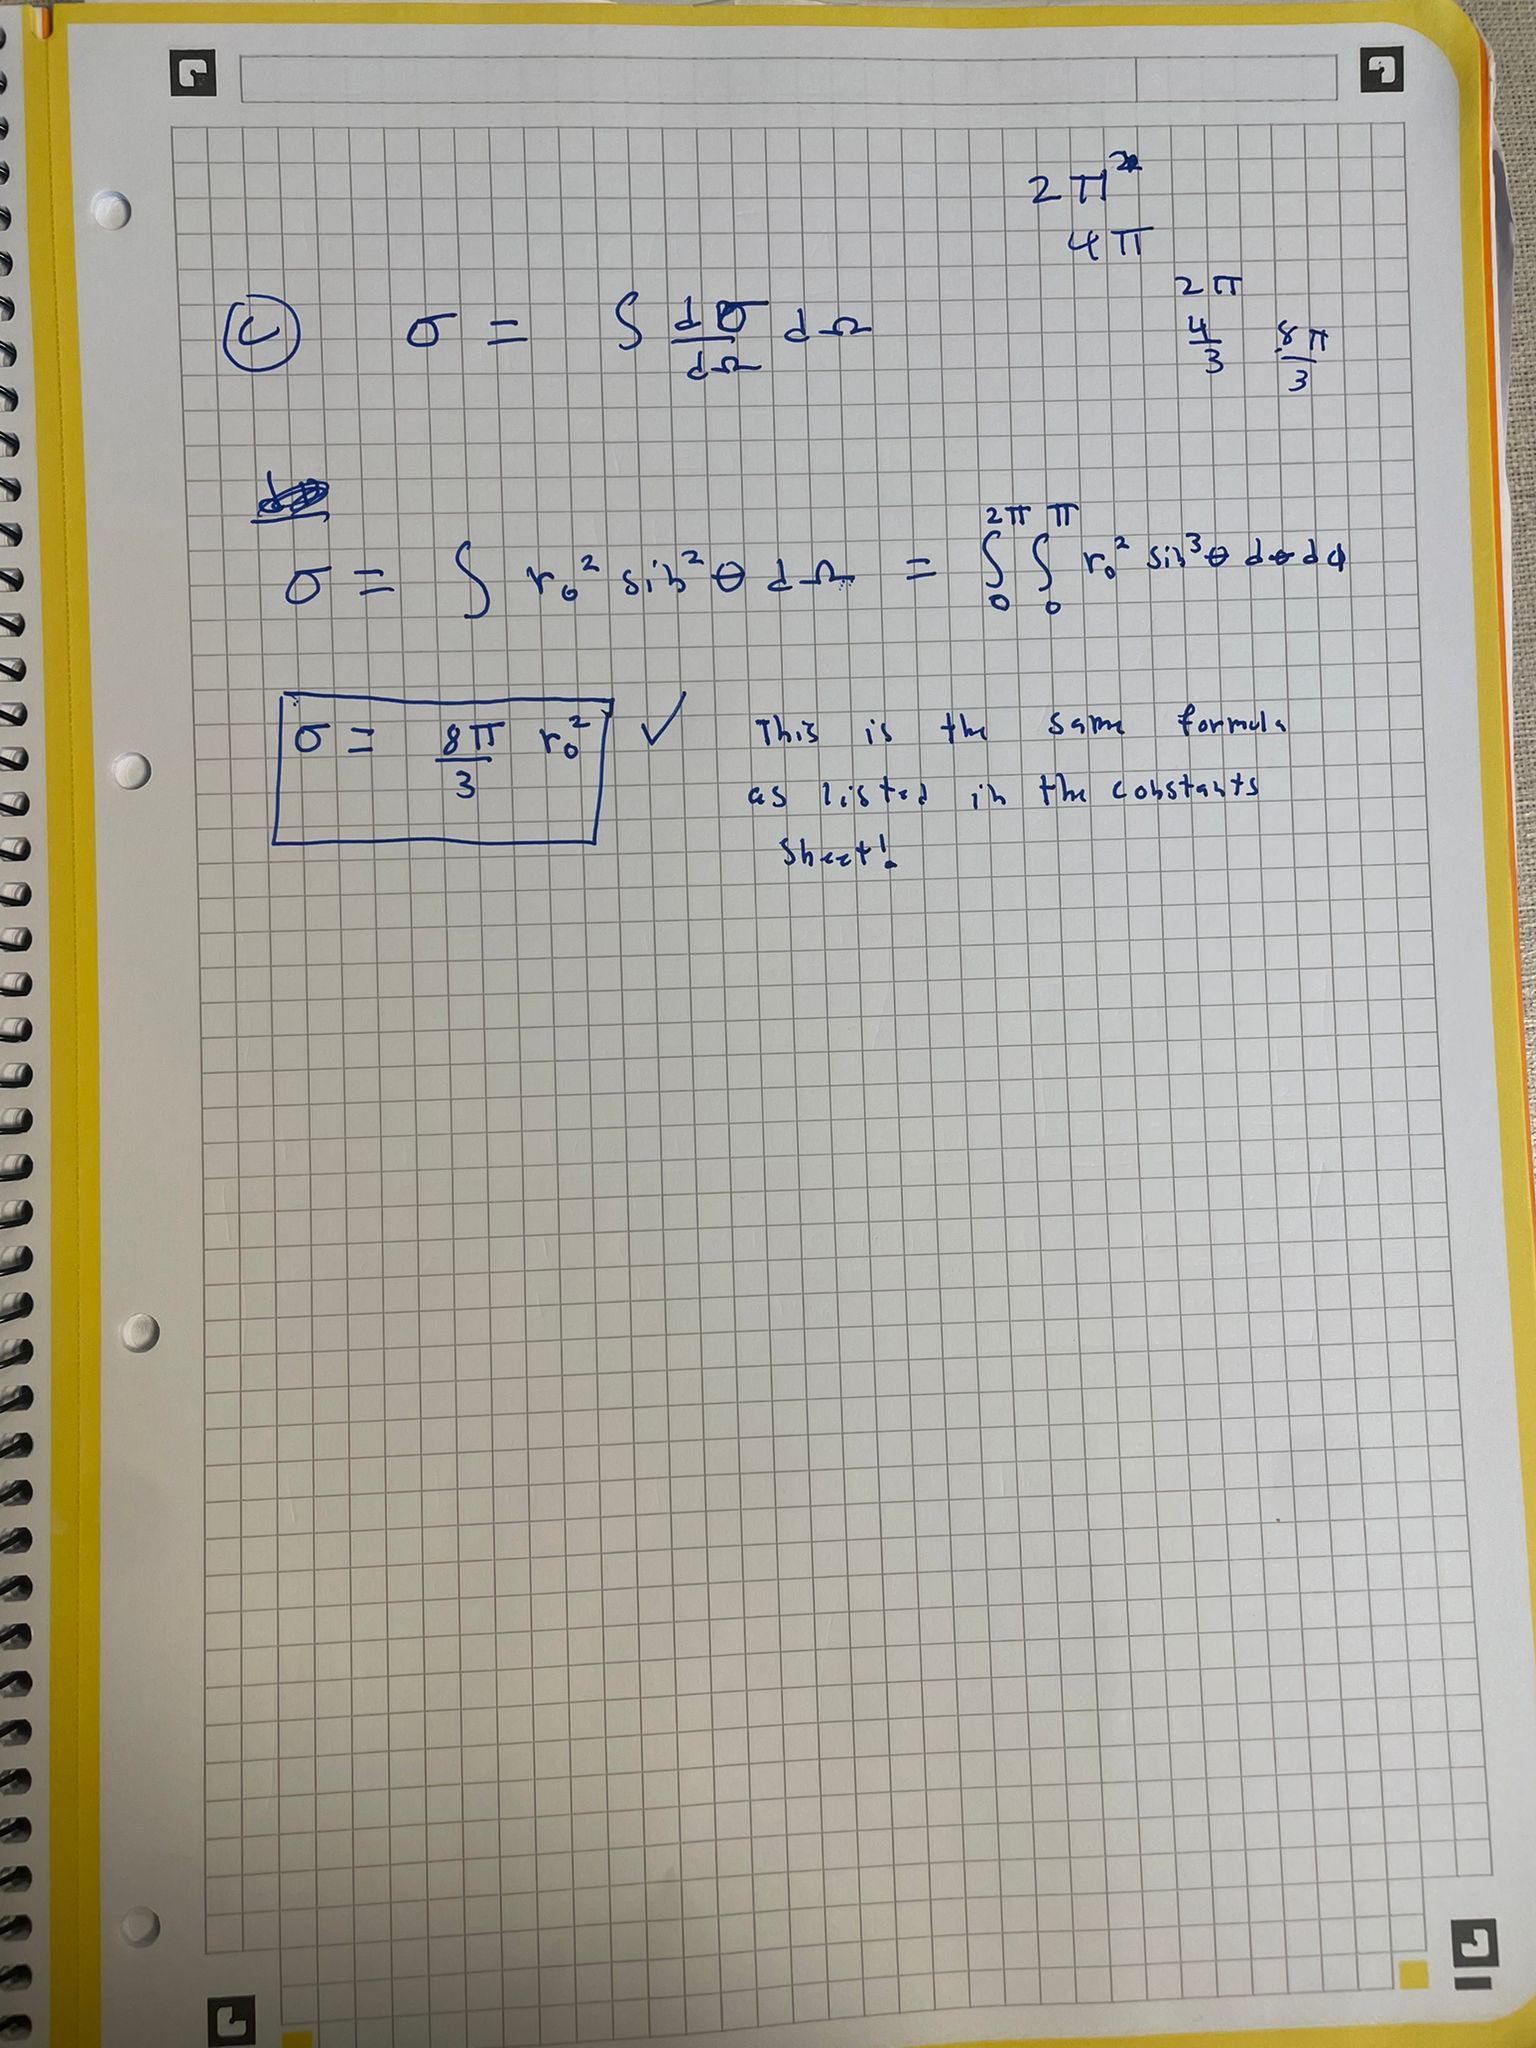 2π²
4π
2π
4/3 8π/3
(c) σ = ∫ dσ/dΩ dΩ
σ = ∫ r₀² sin²θ dΩ = ∫₀^2π ∫₀^π r₀² sin³θ dθ dϕ
σ = 8π/3 r₀² ✓ This is the same formula
as listed in the constants
sheet!